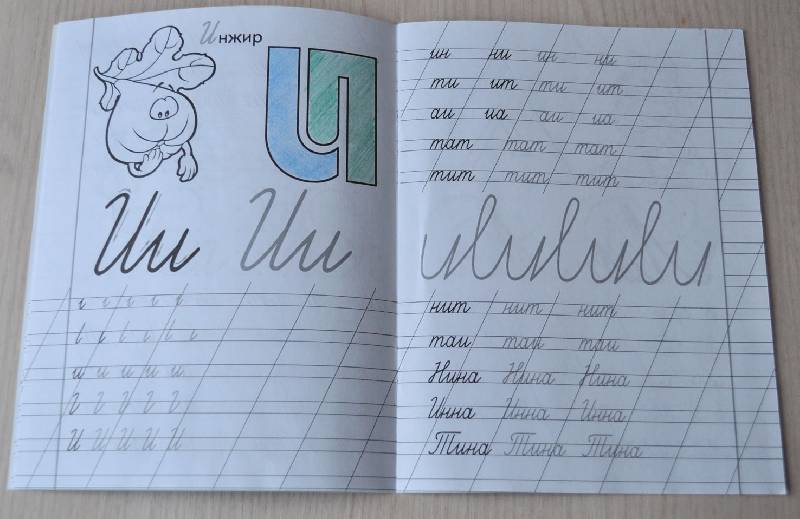 Инжир
И
Ии Ии
и и и и и
И И И И И
ин ни ин ни
ти ит ти ит
аи иа аи иа
тат тат тат
тит тит тит
нит нит нит
таи таи таи
Нина Нина Нина
Инна Инна Инна
Тина Тина Тина